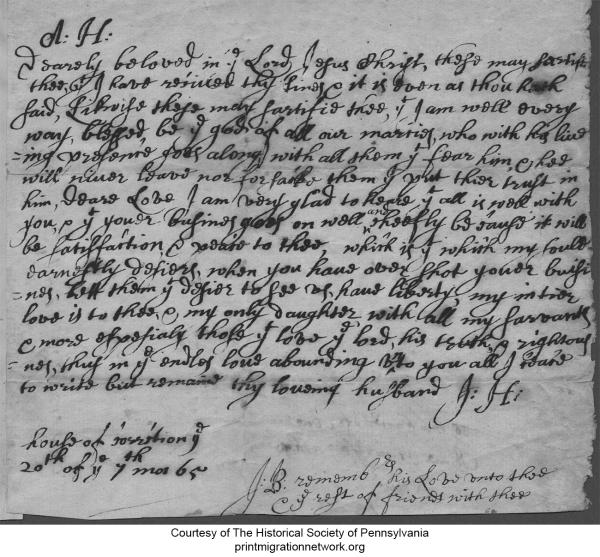 A: H:
Dearely beloved in yᵉ Lord Jesus Christ, these may sartifie
thee, yᵗ I have reciued thy lines & it is even as thou hast
said, Likwise these may sartifie thee, yᵗ I am well every
way, blessed be yᵉ god of all our marcies, who with his live
=ing presence goes along with all them yᵗ fear him, & hee
will niuer leave nor forsacke them yᵗ put thier trust in
him, Deare Love I am very glad to heare yᵗ all is well with
you, & yᵗ youer busines goes on well and cheefly because it will
be sattisfaction & peace to thee, which is yᵗ which my soule
earnestly desiers, when you have over shot youer busi
nes, lett them yᵗ desier to see us, have liberty, my intier
love is to thee, & my only daughter with all my sarvants
& more espesialy those yᵗ love yᵉ lord, his truth, & rightous
=nes, thus in yᵉ endles love abounding vnto you all I cease
to write but remaine thy loveing husband J: H:
house of corrétion yᵉ
20ᵗʰ of yᵉ 7ᵗʰ mo: 65
J: B: remembᵉʳˢ his Love vnto thee
& yᵉ rest of friends with thee
Courtesy of The Historical Society of Pennsylvania
printmigrationnetwork.org